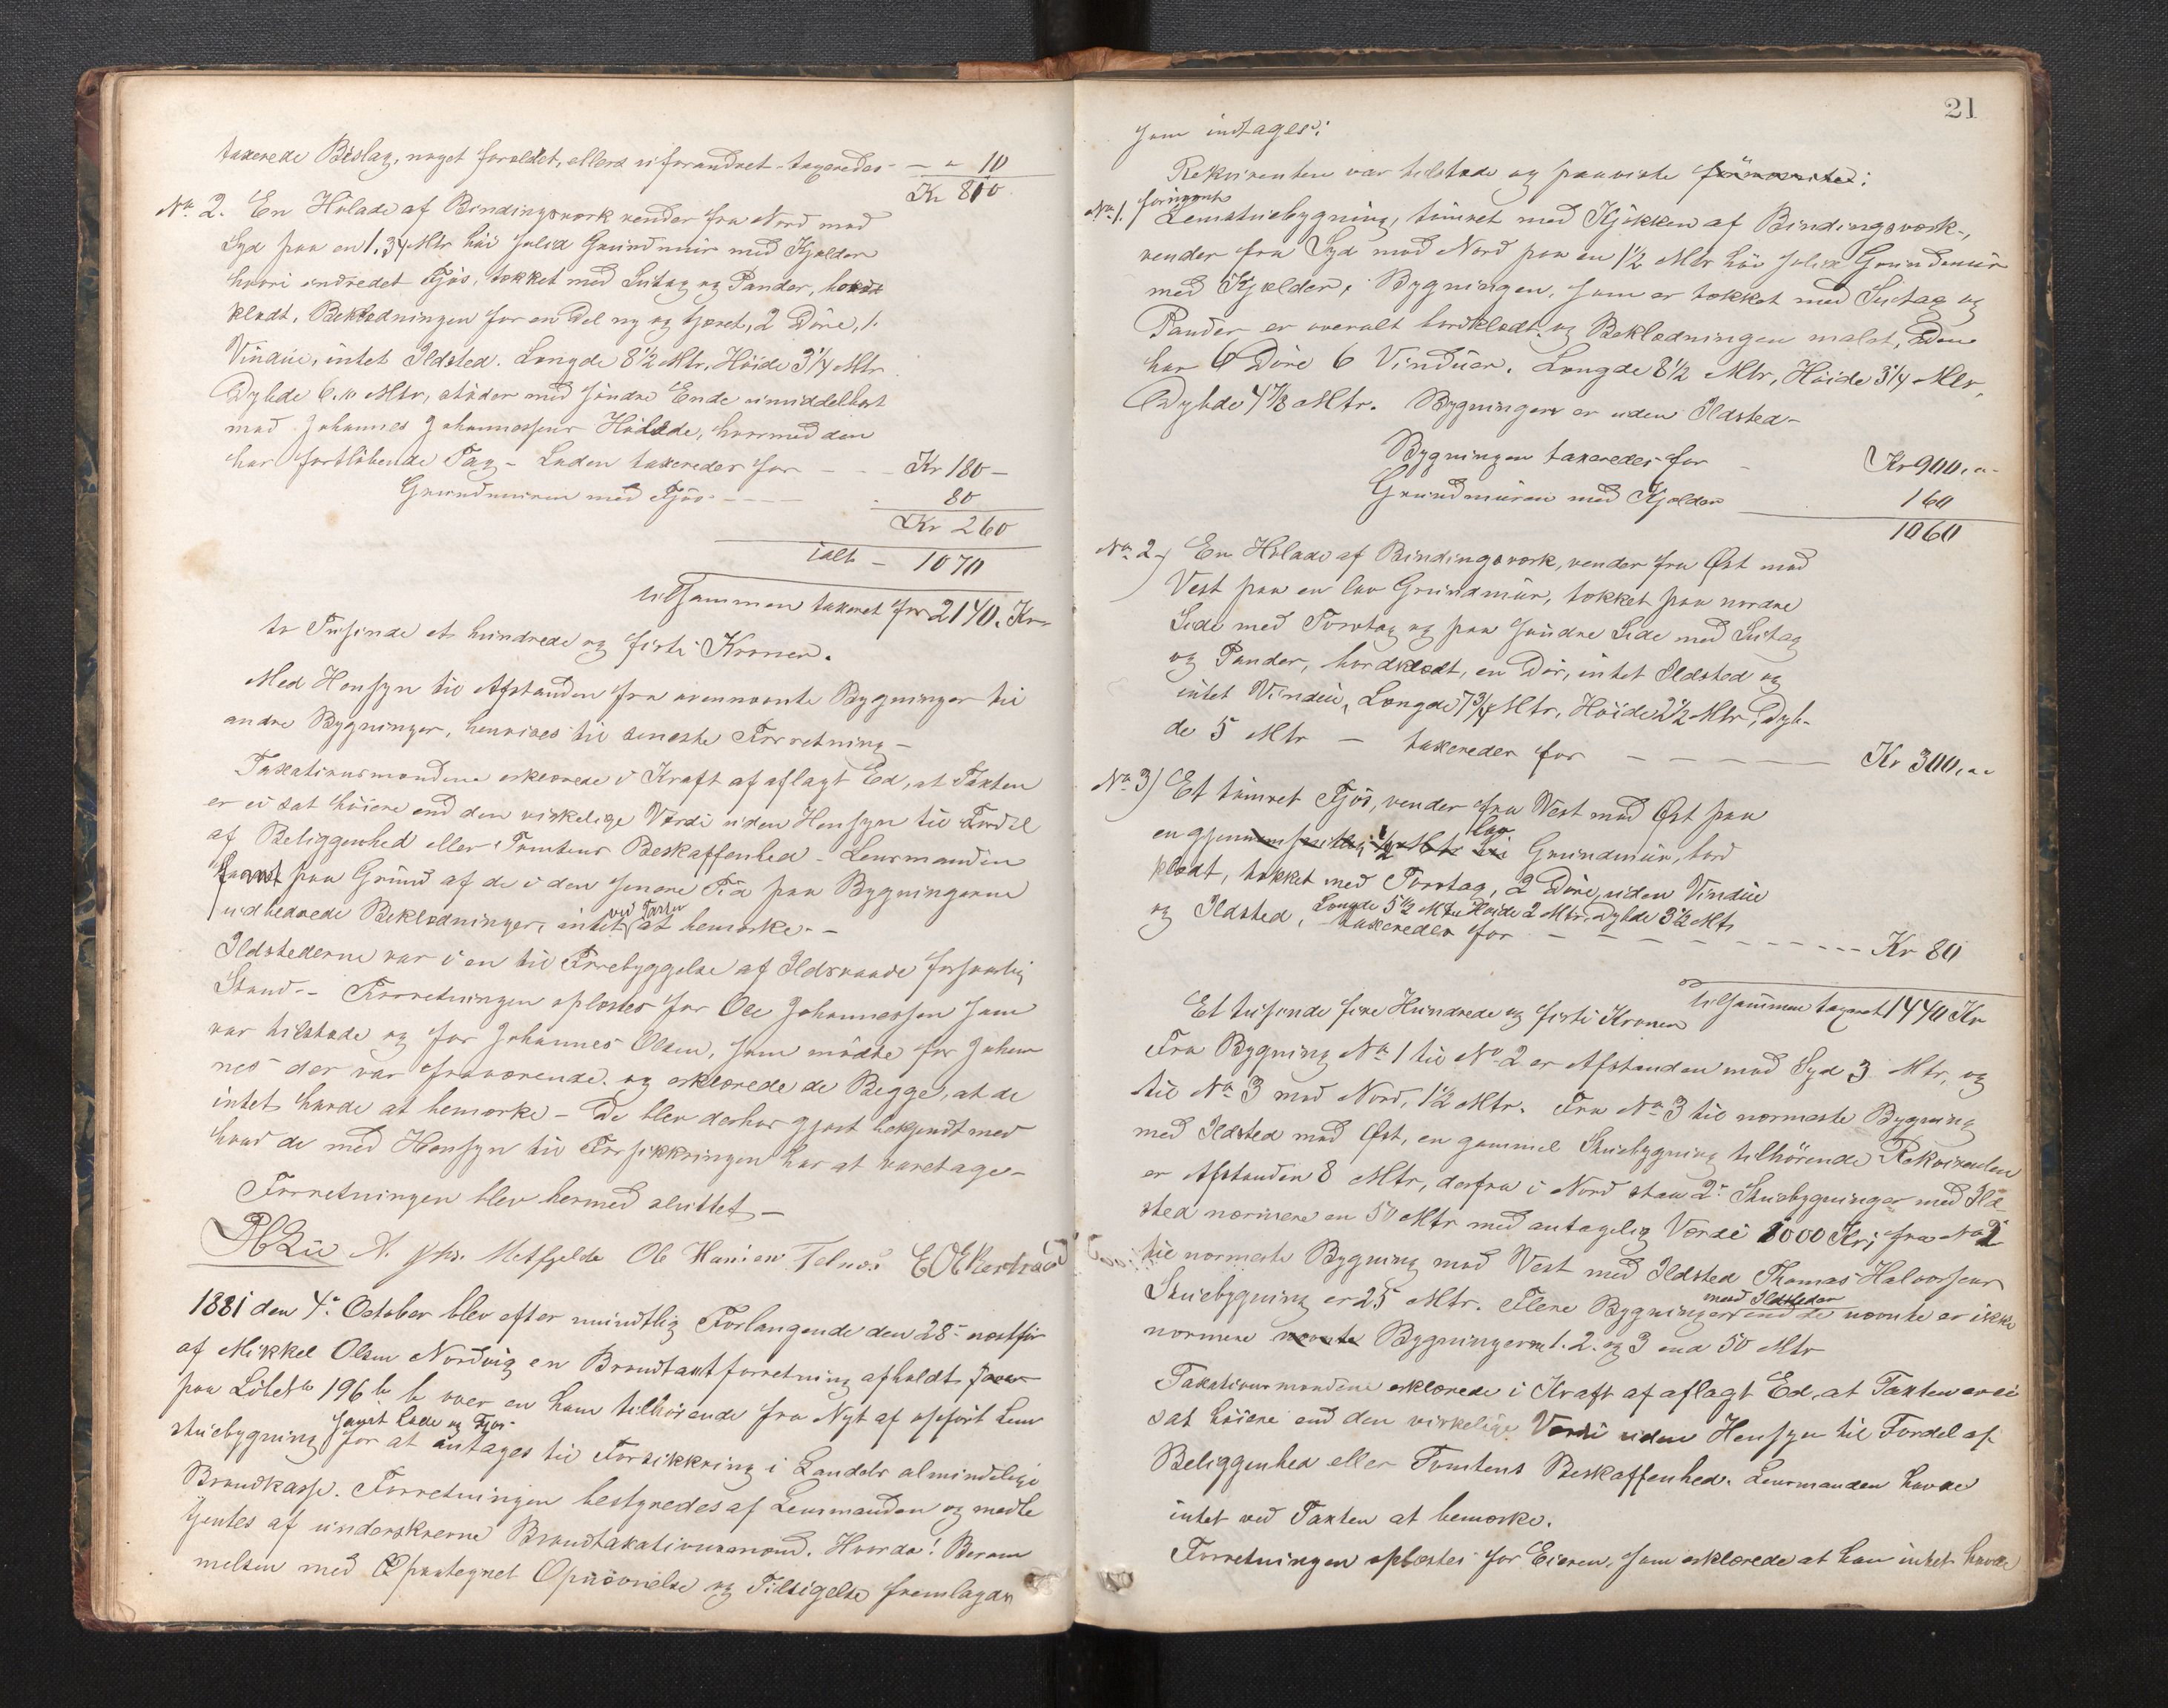 taxerede Bislag, noget forældet, ellers uforandret – taxeredes – – " 10
Kr 810
No 2. En Hölade af Bindingsverk vender fra Nord mod
Syd paa en 1.34 Mtr höi solid Grundmuur med Kjælder
hvori indredet Fjös, tækket med Sutag og Pander, bord
klædt, Beklædningen for en Del ny og tjæret, 2 Döre, 1
Vindue, intet Ildsted. Længde 8 1/2 Mtr, Höide 3 1/4 Mtr
Dybde 6. Mtr, stöder med söndre Ende umiddelbart
mod Johannes Johannessens Hölade, hvormed den
har fortlöbende Tag – Laden taxeredes for – – Kr 180 –
Grundmuren med Fjös – – – 80
Kr 260
ialt – 1070
tilsammen taxeret for 2140. Kr
to Tusinde et hundrede og firti Kroner.
Med Hensyn til Afstanden fra ovennævnte Bygninger til
andre Bygninger, henvises til seneste Forretning –
Taxationsmændene erklærede i Kraft af aflagt Ed, at Taxten
er ei sat höiere end den virkelige Værdi uden Hensyn til Fordel
af Beliggenhed eller Tomtens Beskaffenhed – Lensmanden
fandt paa Grund af de i den senere Tid paa Bygningerne
udbedrede Beklædninger, intet ved Taxten at bemærke. –
Ildstederne var i en til Forebyggelse af Ildsvaade forsvarlig
Stand – Forretningen oplæstes for Ole Johannessen som
var tilstede og for Johannes Olsen, som mödte for Johan
nes der var fraværende. og erklærede de Begge, at de
intet havde at bemærke – De blev derhos gjort bekjendt med
hvad de med Hensyn til Forsikkringen har at varetage –
Forretningen blev hermed sluttet –
A. Ole Hansen Telnes
1881 den 4de October blev efter mundtlig Forlangende den 28de næstför
af Mikkel Olsen Nordvig en Brandtaxtforretning afholdt
paa Löbe No 196 b over en ham tilhörende fra Nyt af opfört Lem
stuebygning samt Lade og Fjös for at antages til Forsikkring i Landets almindelige
Brandkasse. Forretningen bestyredes af Lensmanden og medbe
tjentes af underskrevne Brandtaxationsmænd. Hvorda! Beram
melsen med paategnet Opnævnelse og Tilsigelse fremlagdes
21
som indtages:
Rekvirenten var tilstede og paaviste
No 1. Lemstuebygning, tömret med Kjökken af Bindingsverk –,
vender fra Syd mod Nord paa en 1 1/2 Mtr höi solid Grundmuur
med Kjælder, Bygningen, som er tækket med Sutag og
Pander er overalt bordklædt, og Beklædningen malet, Den
har 6 Döre 6 Vinduer. Længde 8 1/2 Mtr, Höide 3 1/4 Mtr,
Dybde 4 7/8 Mtr. Bygningen er uden Ildsted –
Bygningen taxeredes for – Kr 900. "
Grundmuren med Kjælder 160
1060
No 2) En Hölade af Bindingsverk, vender fra Öst mod
Vest paa en lav Grundmuur, tækket paa nordre
Side med Torvtag og paa söndre Side med Sutag
og Pander, bordklædt, en Dör, intet Ildsted og
intet Vindue, Længde 7 3/4 Mtr, Höide 2 1/2 Mtr, Dyb-
de 5 Mtr – taxeredes for – – – – Kr 300. "
No 3) Et tömret Fjös, vender fra Vest mod Öst paa
en lav Grundmuur, bord
klædt, tækket med Torvtag, 2 Döre, uden Vindue
og Ildsted, Længde 5 1/2 Mtr Höide 2 Mtr. Dybde 3 1/2 Mtr
taxeredes for – – – – – Kr 80
tilsammen taxeret 1440 Kr
Et tusinde fire Hundrede og firti Kroner
Fra Bygning No 1 til No 2 er Afstanden mod Syd 3 Mtr, og
til No 3 mod Nord, 1 1/2 Mtr. Fra No 3 til nærmeste Bygning
med Ildsted mod Öst, en gammel Stuebygning tilhörende Rekvirenten
er Afstanden 8 Mtr, derfra i Nord staa 2de Stuebygninger med Ild-
sted nærmere en 50 Mtr med antagelig Værdi 1000 Kr; fra No 2
til nærmeste Bygning mod Vest med Ildsted Thomas Halvorsens
Stuebygning er 25 Mtr. Flere Bygninger med Ildsteder end de nævnte er ikke
nærmere Bygningerne 1. 2. og 3 end 50 Mtr
Taxationsmændene erklærede i Kraft af aflagt Ed, at Taxten er ei
sat höiere end den virkelige Værdi uden Hensyn til Fordel af
Beliggenhed eller Tomtens Beskaffenhed. Lensmanden havde
intet ved Taxten at bemærke.
Forretningen oplæstes for Eieren, som erklærede at han intet havde